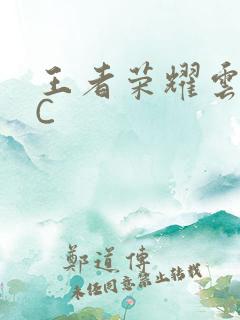 王者荣耀雲
C
鄭道傳
未任同意禁止转载